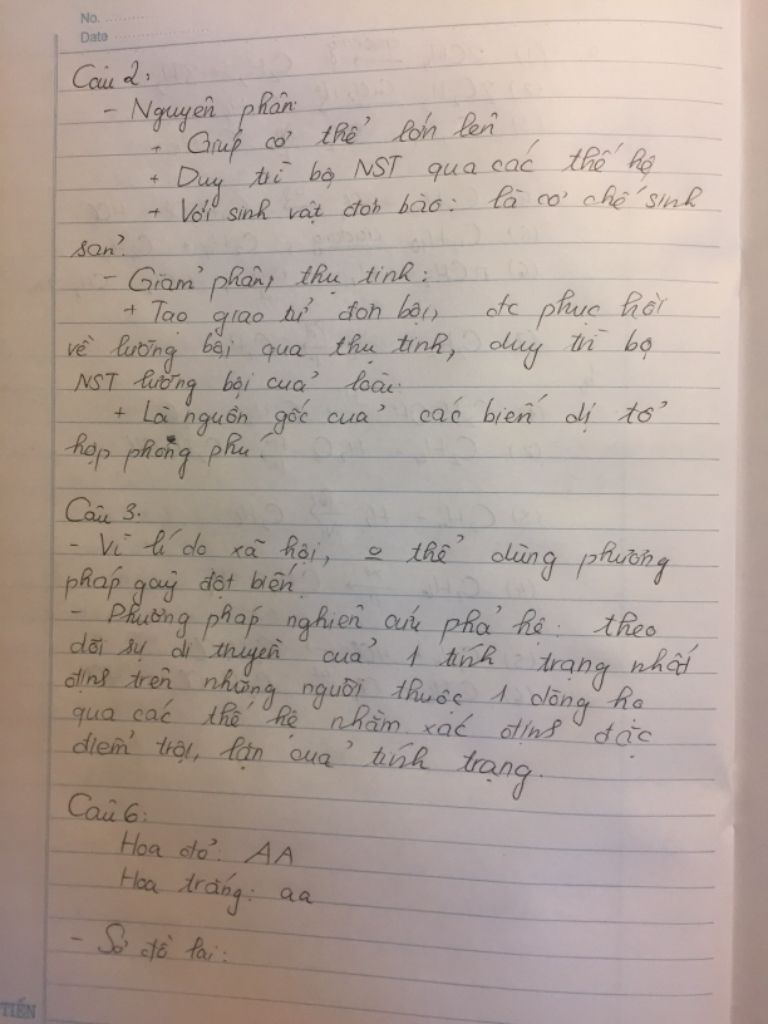 No.
Date
Câu 2:
- Nguyên phân:
+ Giúp cơ thể lớn lên
+ Duy trì bộ NST qua các thế hệ
+ Với sinh vật đơn bào: là cơ chế sinh
sản.
- Giảm phân, thụ tinh:
+ Tạo giao tử đơn bội, đc phục hồi
về lưỡng bội qua thụ tinh, duy trì bộ
NST lưỡng bội của loài.
+ Là nguồn gốc của các biến dị tổ
hợp phong phú.
Câu 3.
- Vì lí do xã hội, o thể dùng phương
pháp gây đột biến.
- Phương pháp nghiên cứu phả hệ: theo
dõi sự di truyền của 1 tính trạng nhất
định trên những người thuộc 1 dòng họ
qua các thế hệ nhằm xác định đặc
điểm trội, lặn của tính trạng.
Câu 6:
Hoa đỏ: AA
Hoa trắng: aa
- Sơ đồ lai:
TIẾN